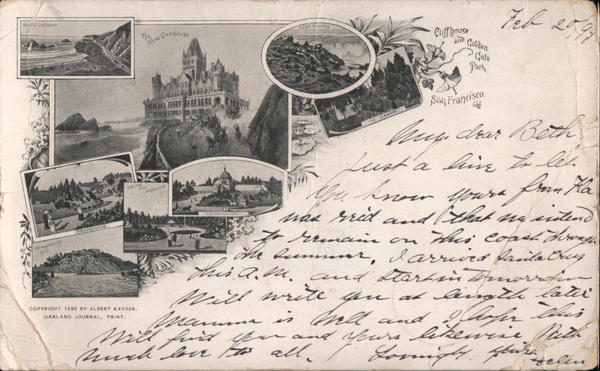 Feb 20/97
The Old Cliffhouse
The New Cliffhouse
Seal Rocks
Cliffhouse
and Golden
Gate
Park,
San Francisco,
Cal
My dear Beth
Just a line to let
you know yours from
was rec'd and that we intend
to remain on this coast through
the summer. I arrived
this A.M. and start in tomorrow
Will write you at length later
Mamma is well and I hope this
will find you and yours likewise With
much love to all. Lovingly yours
Helen
COPYRIGHT 1896 BY ALBERT KAYSER.
OAKLAND JOURNAL, PRINT.